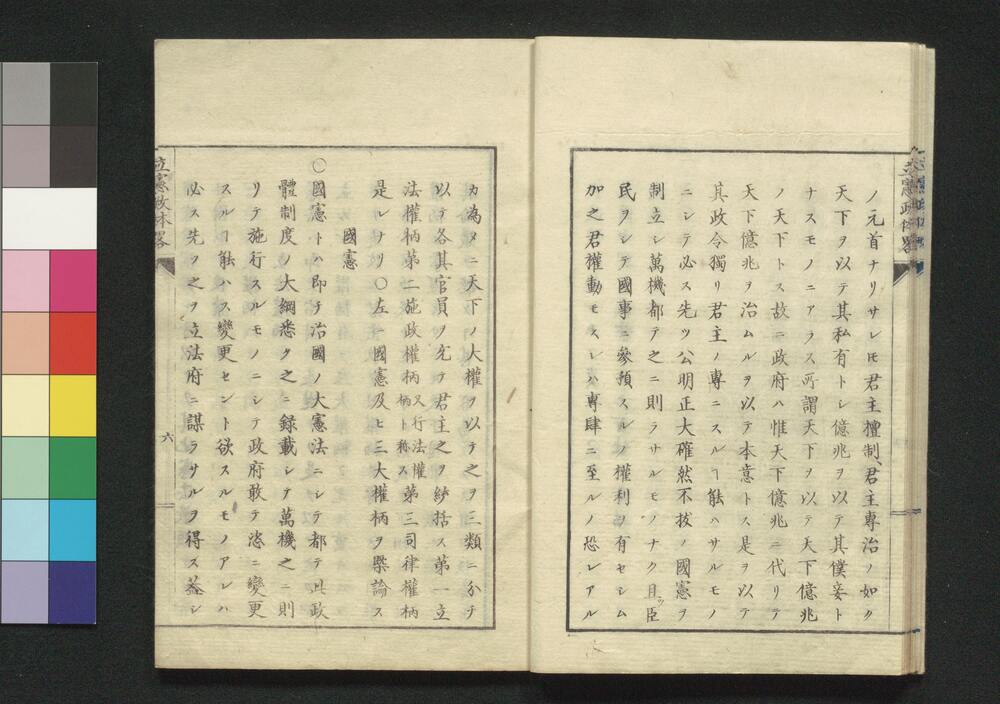 ノ元首ナリサレ𪜈君主擅制、君主專治ノ如ク
天下ヲ以テ其私有トシ億兆ヲ以テ其僕妾ト
ナスモノニアラス所謂天下ヲ以テ天下億兆
ノ天下トス故ニ政府ハ惟天下億兆ニ代リテ
天下億兆ヲ治ムルヲ以テ本意トス是ヲ以テ
其政令獨リ君主ノ專ニスルヿ能ハサルモノ
ニシテ必ス先ツ公明正大確然不拔ノ國憲ヲ
制立シ萬機都テ之ニ則ラサルモノナク且ツ臣
民ヲシテ國事ニ參預スルノ權利ヲ有セシム
加之君權動モスレハ專肆ニ至ルノ恐レアル
立憲政体畧
カ為メニ天下ノ大權ヲ以テ之ヲ三類ニ分チ
以テ各其官員ヲ充テ君主之ヲ統括ス第一立
法權柄第二施政權柄又行法權柄ト称ス第三司律權柄
是レナリ〇左ニ國憲及ヒ三大權柄ヲ槩論ス
國憲
〇國憲トハ即チ治國ノ大憲法ニシテ都テ此政
體制度ノ大綱悉ク之ニ録載シテ萬機之ニ則
リテ施行スルモノニシテ政府敢テ恣ニ變更
スルヿ能ハス變更セント欲スルモノアレハ
必ス先ツ之ヲ立法府ニ謀ラサルヲ得ス蓋シ
立憲政体畧
六